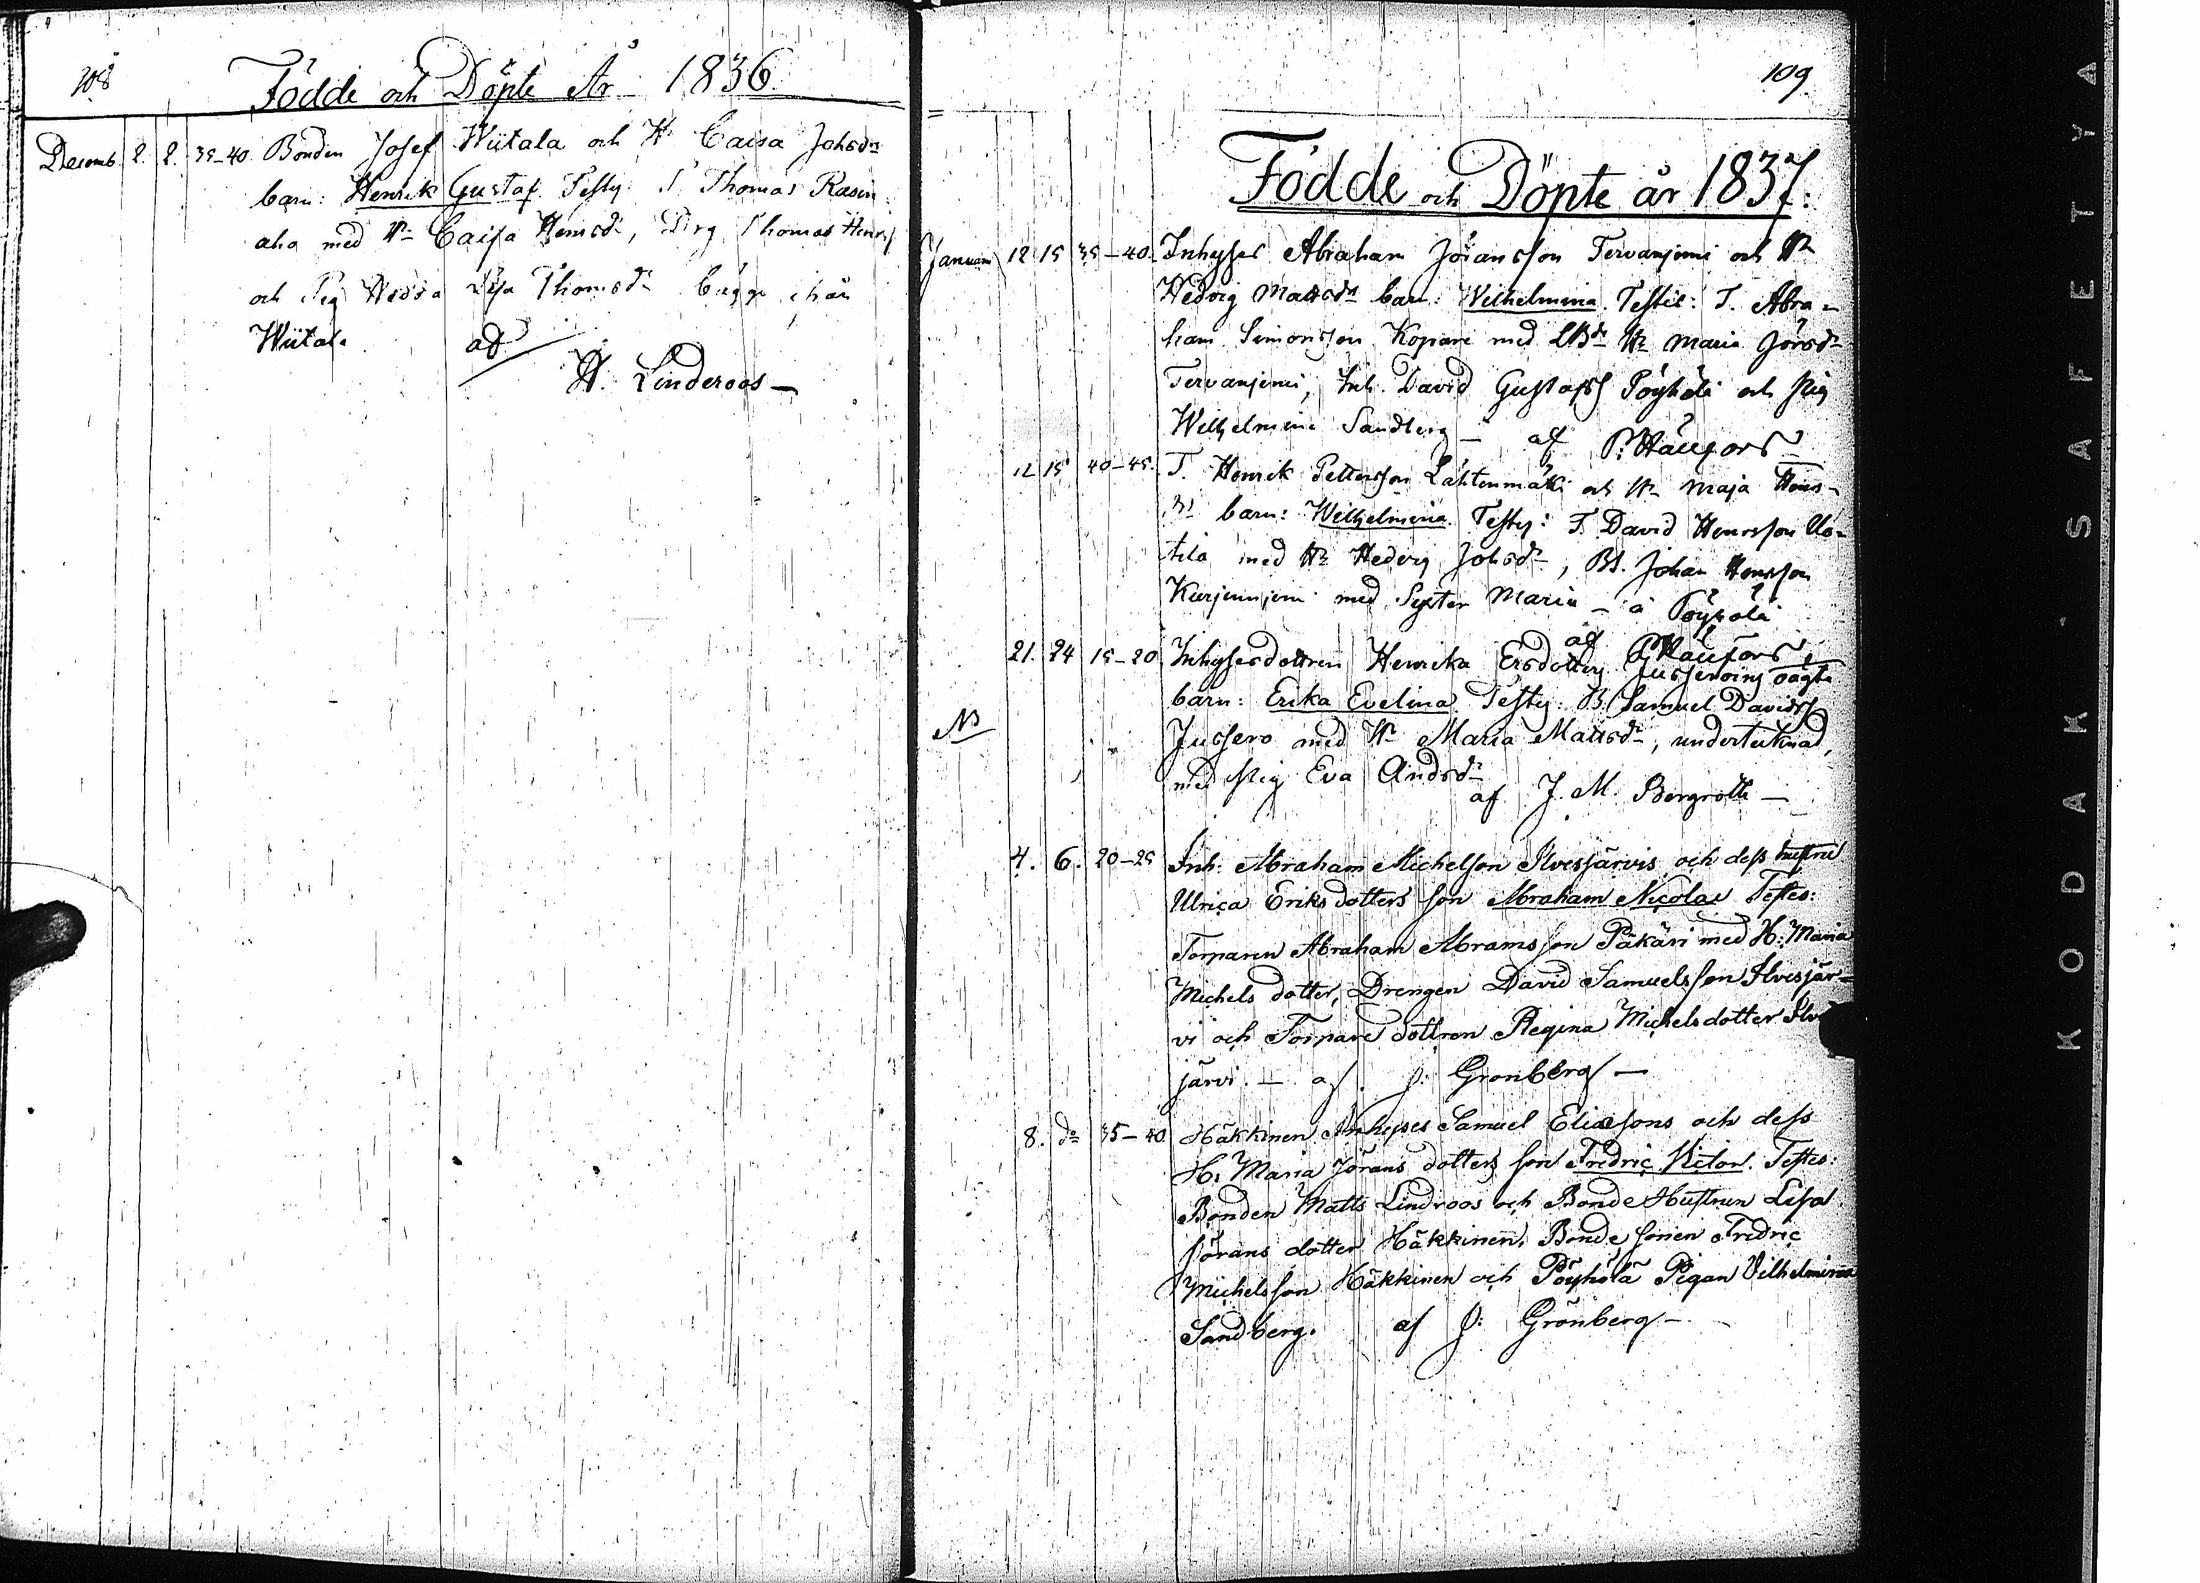 108
Födde och Döpte År 1836.
Decemb. 2. 2. 35-40. Bonden Josef Wiitala och H. Caisa Johsdr
barn: Henrik Gustaf. Testg. T. Thomas Rasin-
aho med Hu Caisa Henrsdr, Drg. Thomas Henrs
och Pig Hedda Lisa Thomsdr bägge ifrån
Wiitala af
H. Linderoos —
109
Födde och Döpte år 1837.
Januari 12 15 35-40. Inhyses Abraham Jöransson Tervaniemi och Hu
Hedvig Mattsdr barn: Wilhelmina. Testic: T. Abra-
ham Simonsson Kopare med Hu Maria Jörsdr
Tervaniemi, Inh. David Gustafss Pöyhölä och Pig
Wilhelmina Sandberg — af
12 15 40-45. T. Henrik Pettersson Lähtenmäki och Hu Maja Henrs-
dr barn: Wilhelmina. Testg: T. David Henrsson Uo-
tila med Hu Hedvig Johsdr, Bs. Johan Henrsson
Kurjenniemi med Syster Maria — å Pöyhölä
af
21. 24 15-20 Inhysesdottren Henrika Ersdotter Jusseroins oägta
barn: Erika Evelina. Testg: B. Samuel Davidss
NB
Jussero med Hu Maria Mattsdr, undertecknad,
med Pig Eva Andsdr
af J. M. Bergroth —
4. 6. 20-25 Inh: Abraham Michelson Ilvesjärvis och dess hustru
Ulrica Eriksdotters son Abraham Nicolai Testes:
Torparen Abraham Abramsson Päkäri med H: Maria
Michels dotter, Drengen David Samuelsson Ilvesjär-
vi och Torpare dottren Regina Michelsdotter Ilves
järvi. — af J: Grönberg —
8. do 35-40 Häkkinen Inhyses Samuel Eliæsons och dess
H: Maria Jörans dotters son Fredric Victor. Testes:
Bonden Matts Lindroos och Bonde Hustrun Lisa
Jörans dotter Häkkinen, Bonde sonen Fredric
Michelsson Häkkinen och Pöyhölä Pigan Vilhelmina
Sandberg. af J: Grönberg —
KODAK · SAFETY A